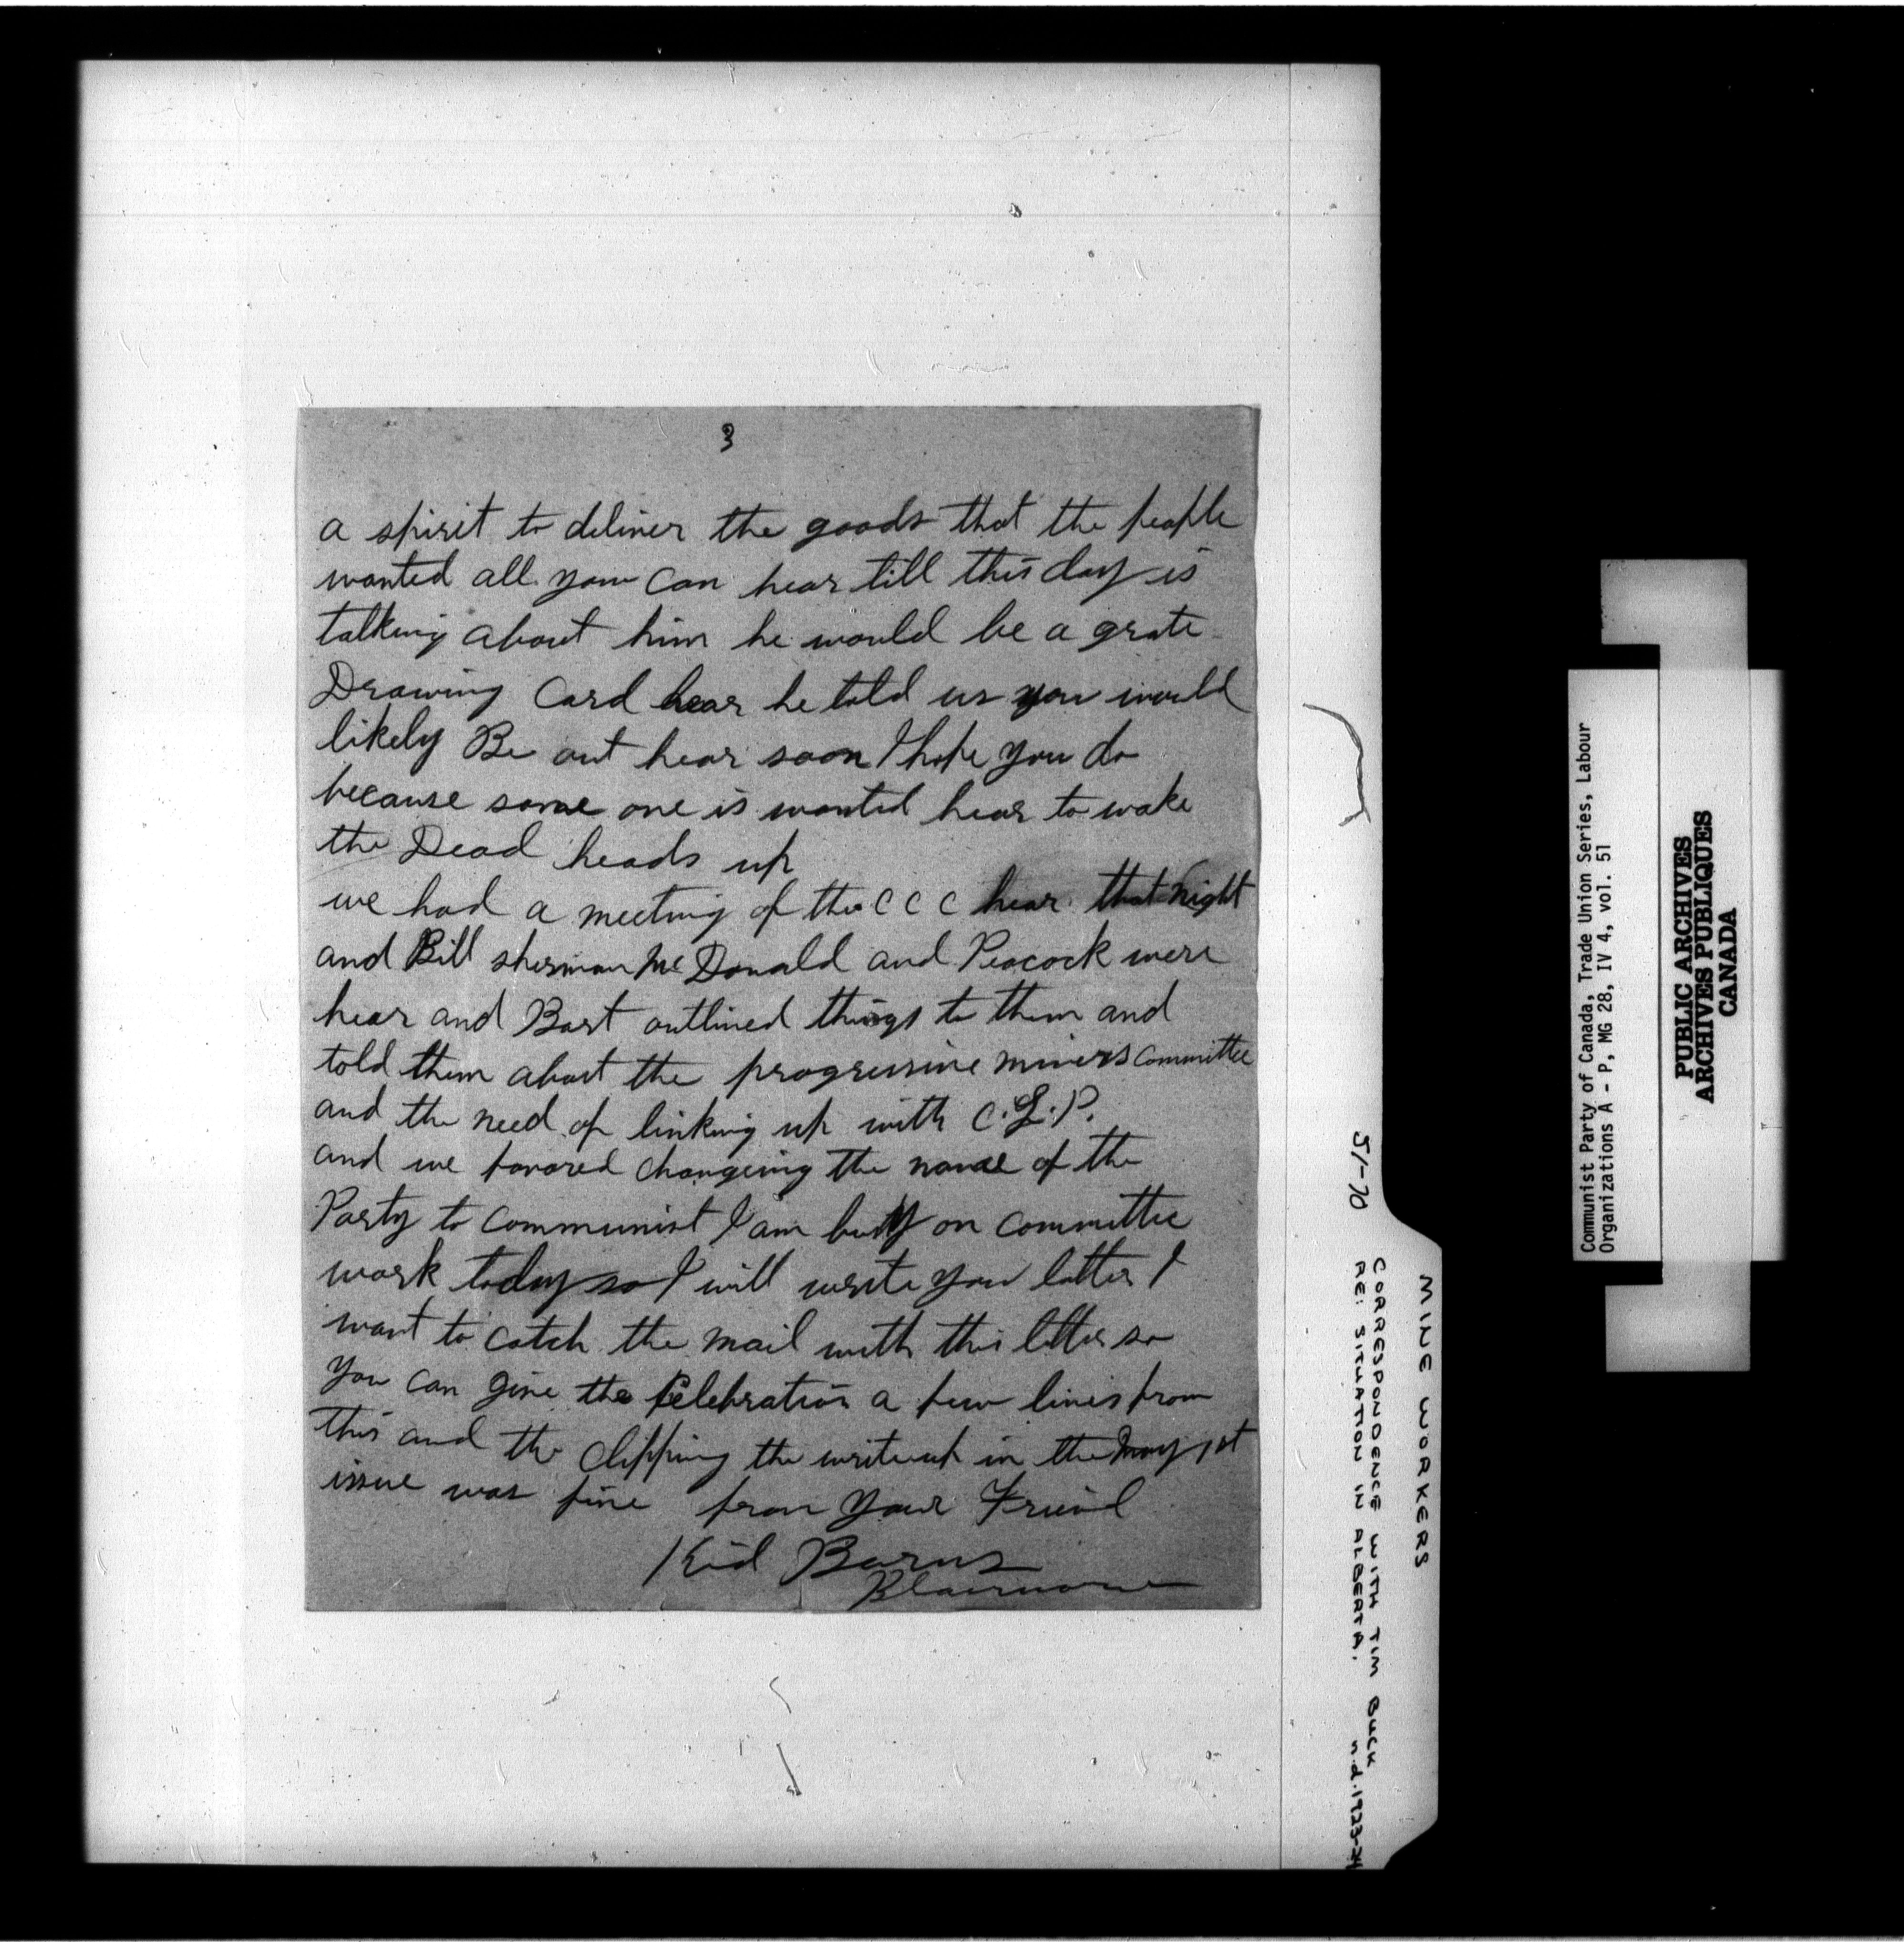 3
a spirit to deliver the goods that the people
wanted all you can hear till this day is
talking about him he would be a grate
Drawing Card hear he told us you would
likely Be out hear soon I hope you do
because some one is wanted hear to wake
the Dead heads up
we had a meeting of the C C C hear that night
and Bill sherman McDonald and Peacock were
hear and Bart outlined things to them and
told them about the progressive miners Committee
and the need of linking up with C.L.P.
and we favored changeing the name of the
Party to Communist I am busy on committee
work today so I will write you latter I
want to catch the mail with this letter so
you can give the Celebration a few lines from
this and the Clipping the writeup in the May 1st
issue was fine from your Friend
Kid Burns
Blairmore
51-70
MINE WORKERS
CORRESPONDENCE WITH TIM BUCK
RE: SITUATION IN ALBERTA.
n.d. 1923-24
Communist Party of Canada, Trade Union Series, Labour
Organizations A - P, MG 28, IV 4, vol. 51
PUBLIC ARCHIVES
ARCHIVES PUBLIQUES
CANADA